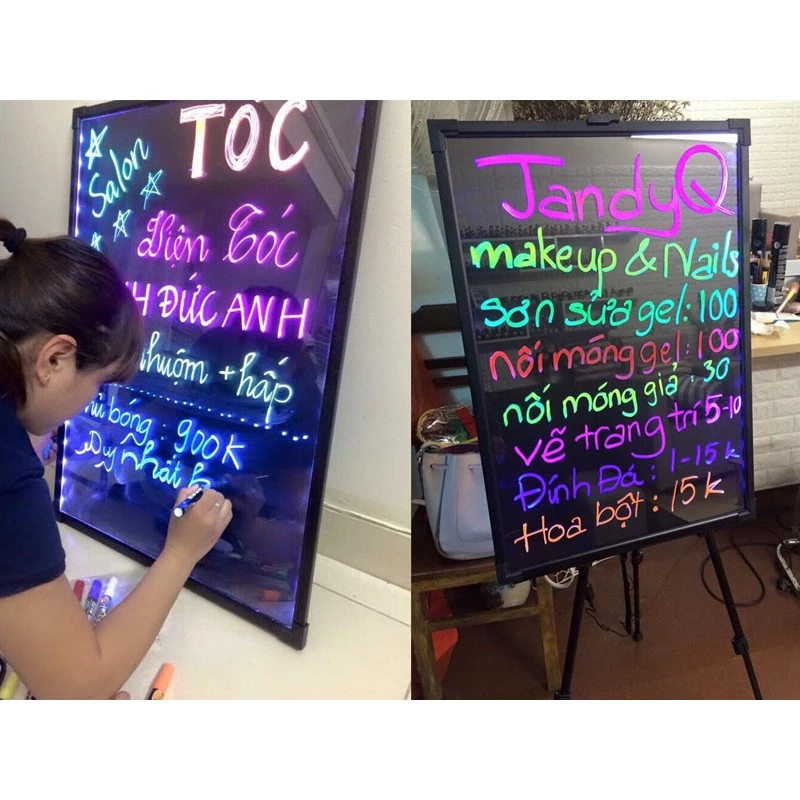 TÓC
Salon
Viện Tóc
H ĐỨC ANH
nhuộm + hấp
bóng: 900K
Duy nhất
JandyQ
makeup & Nails
sơn sửa gel: 100
nối móng gel: 100
nối móng giả: 30
vẽ trang trí 5-10
Đính Đá: 1-15k
Hoa bột: 15k